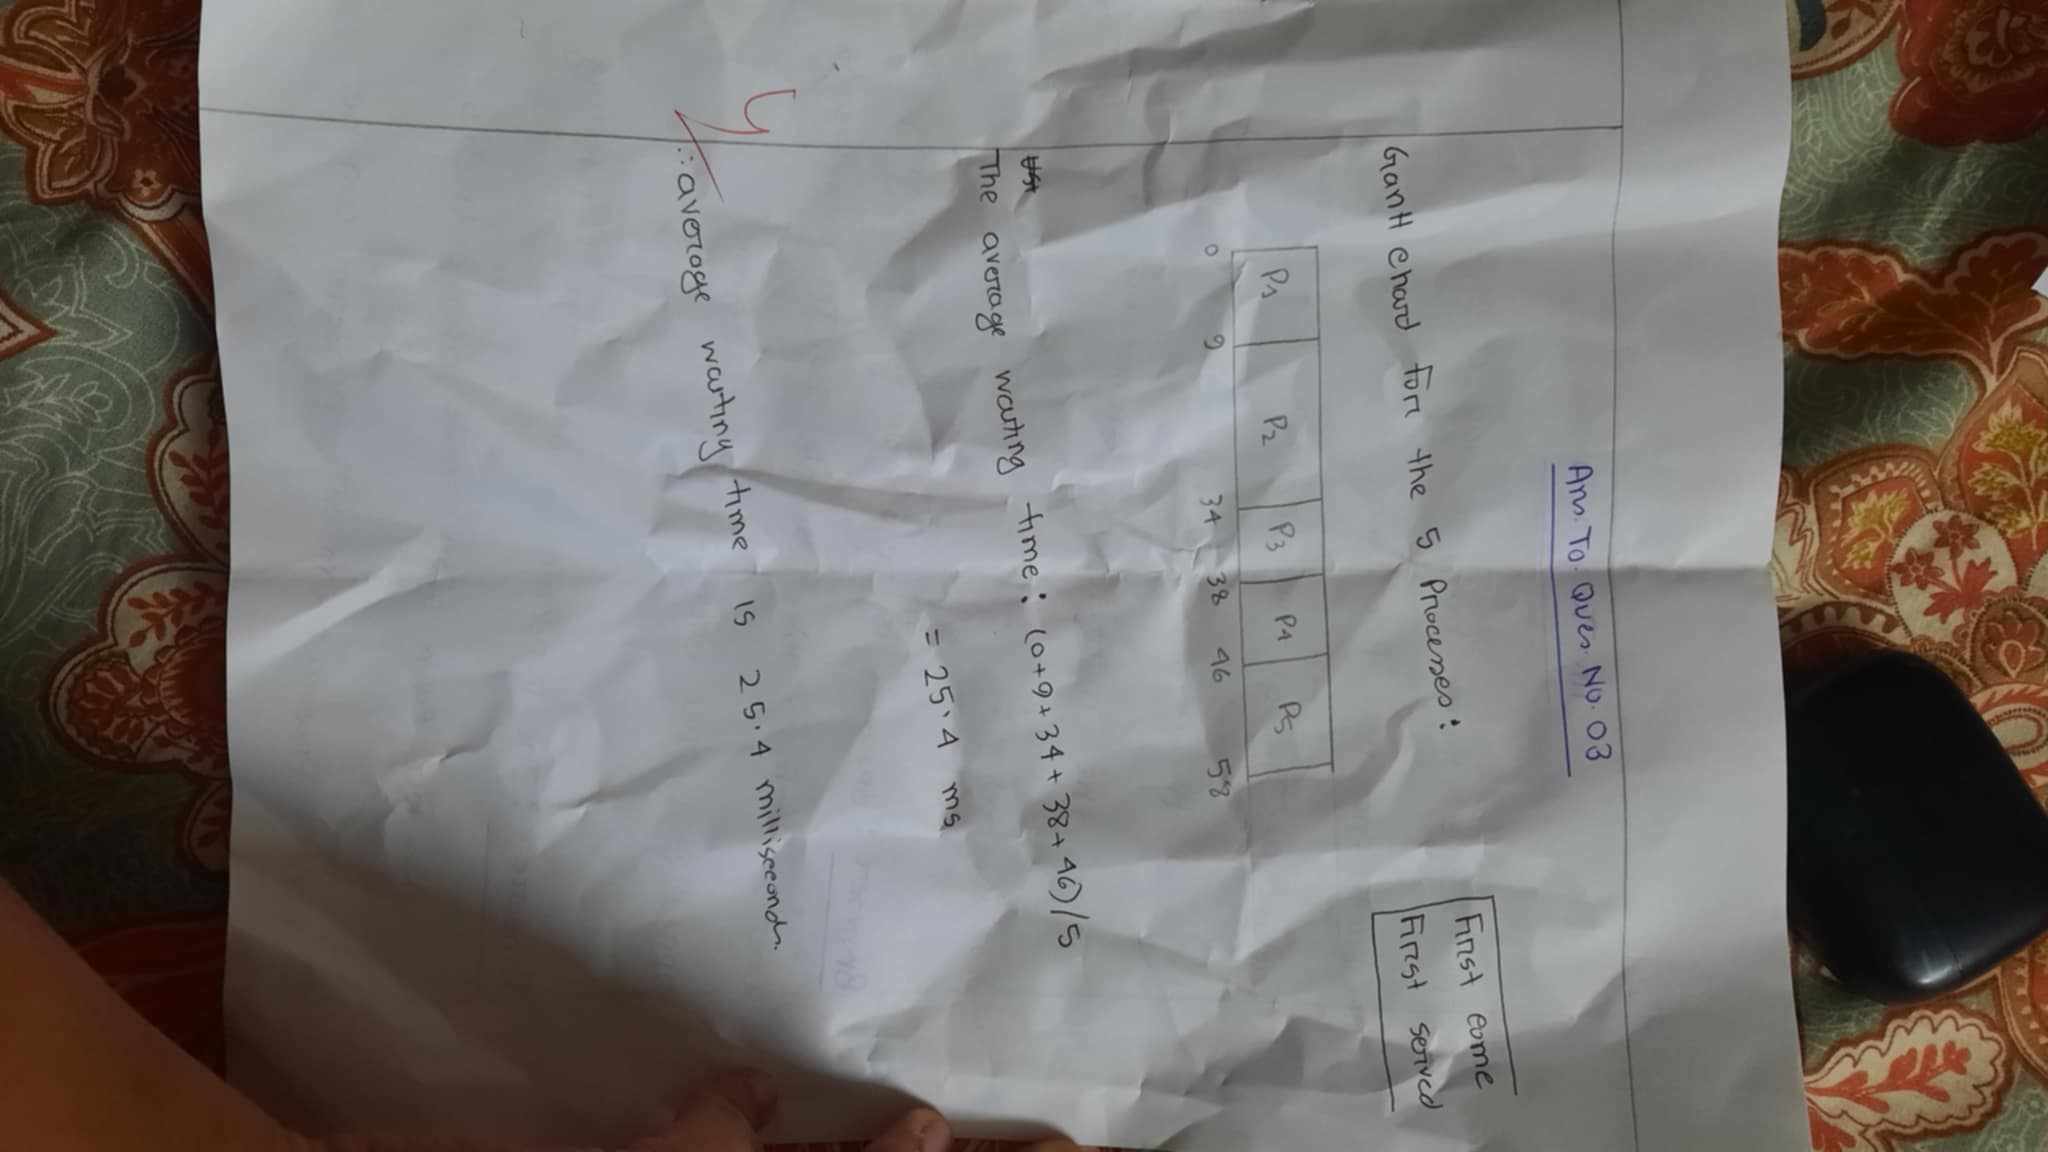 Ans. To. Ques. No. 03
First come
First served
Gantt chard for the 5 Processes:
P1 P2 P3 P4 P5
0 9 34 38 46 58
The average waiting time: (0+9+34+38+46)/5
= 25.4 ms
∴ average waiting time is 25.4 milliseconds.